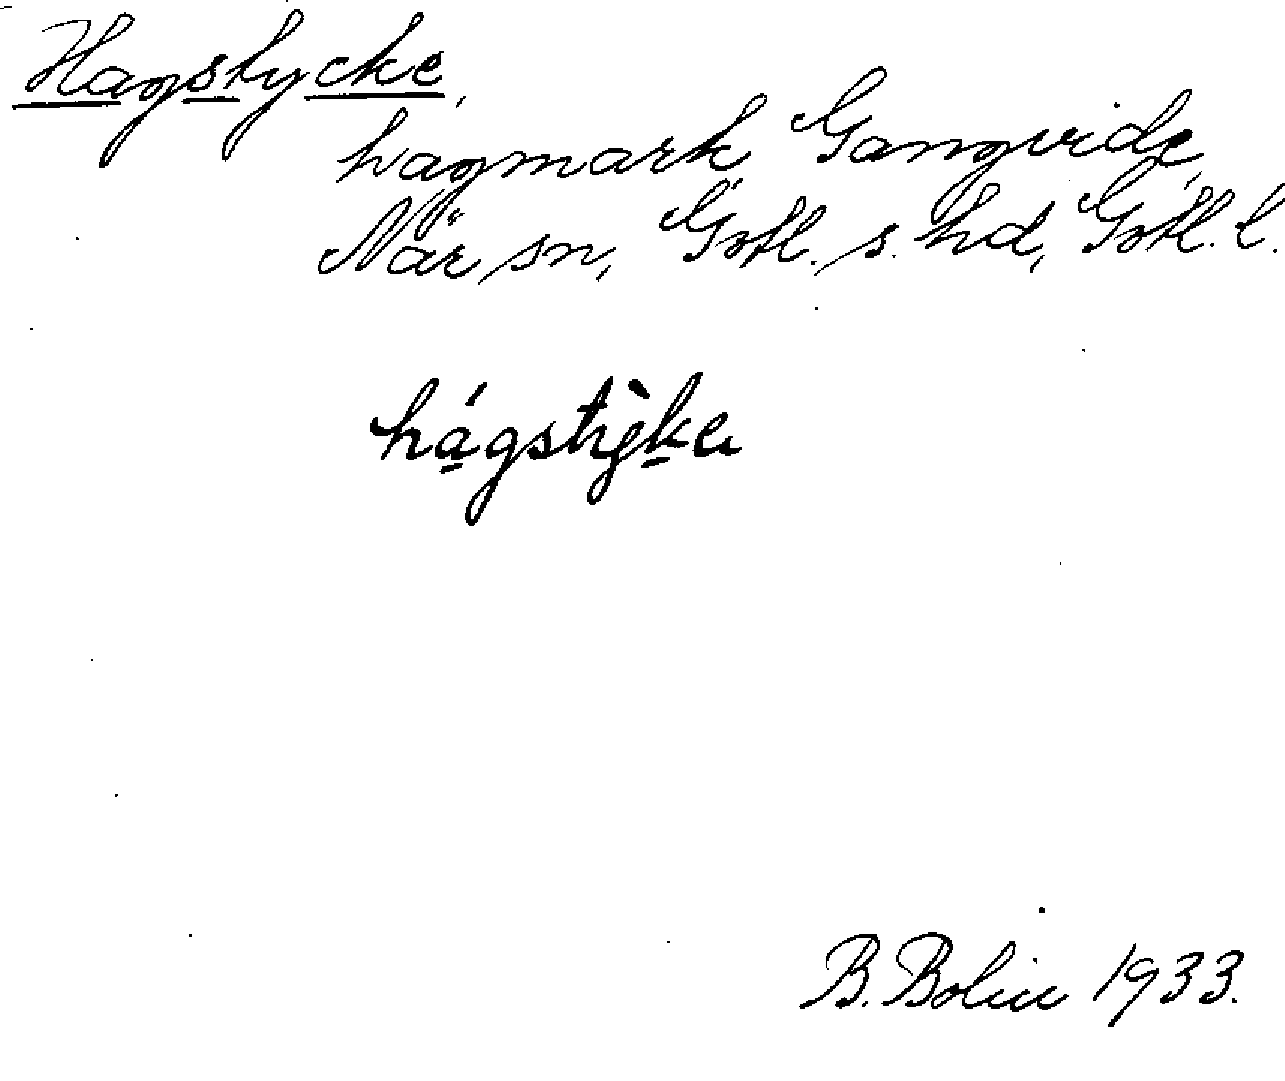 Hagstycke,
hagmark, Gangvide,
När sn, Gotl. s. hd, Gotl. l.
hágstỳka
B. Bolin 1933.